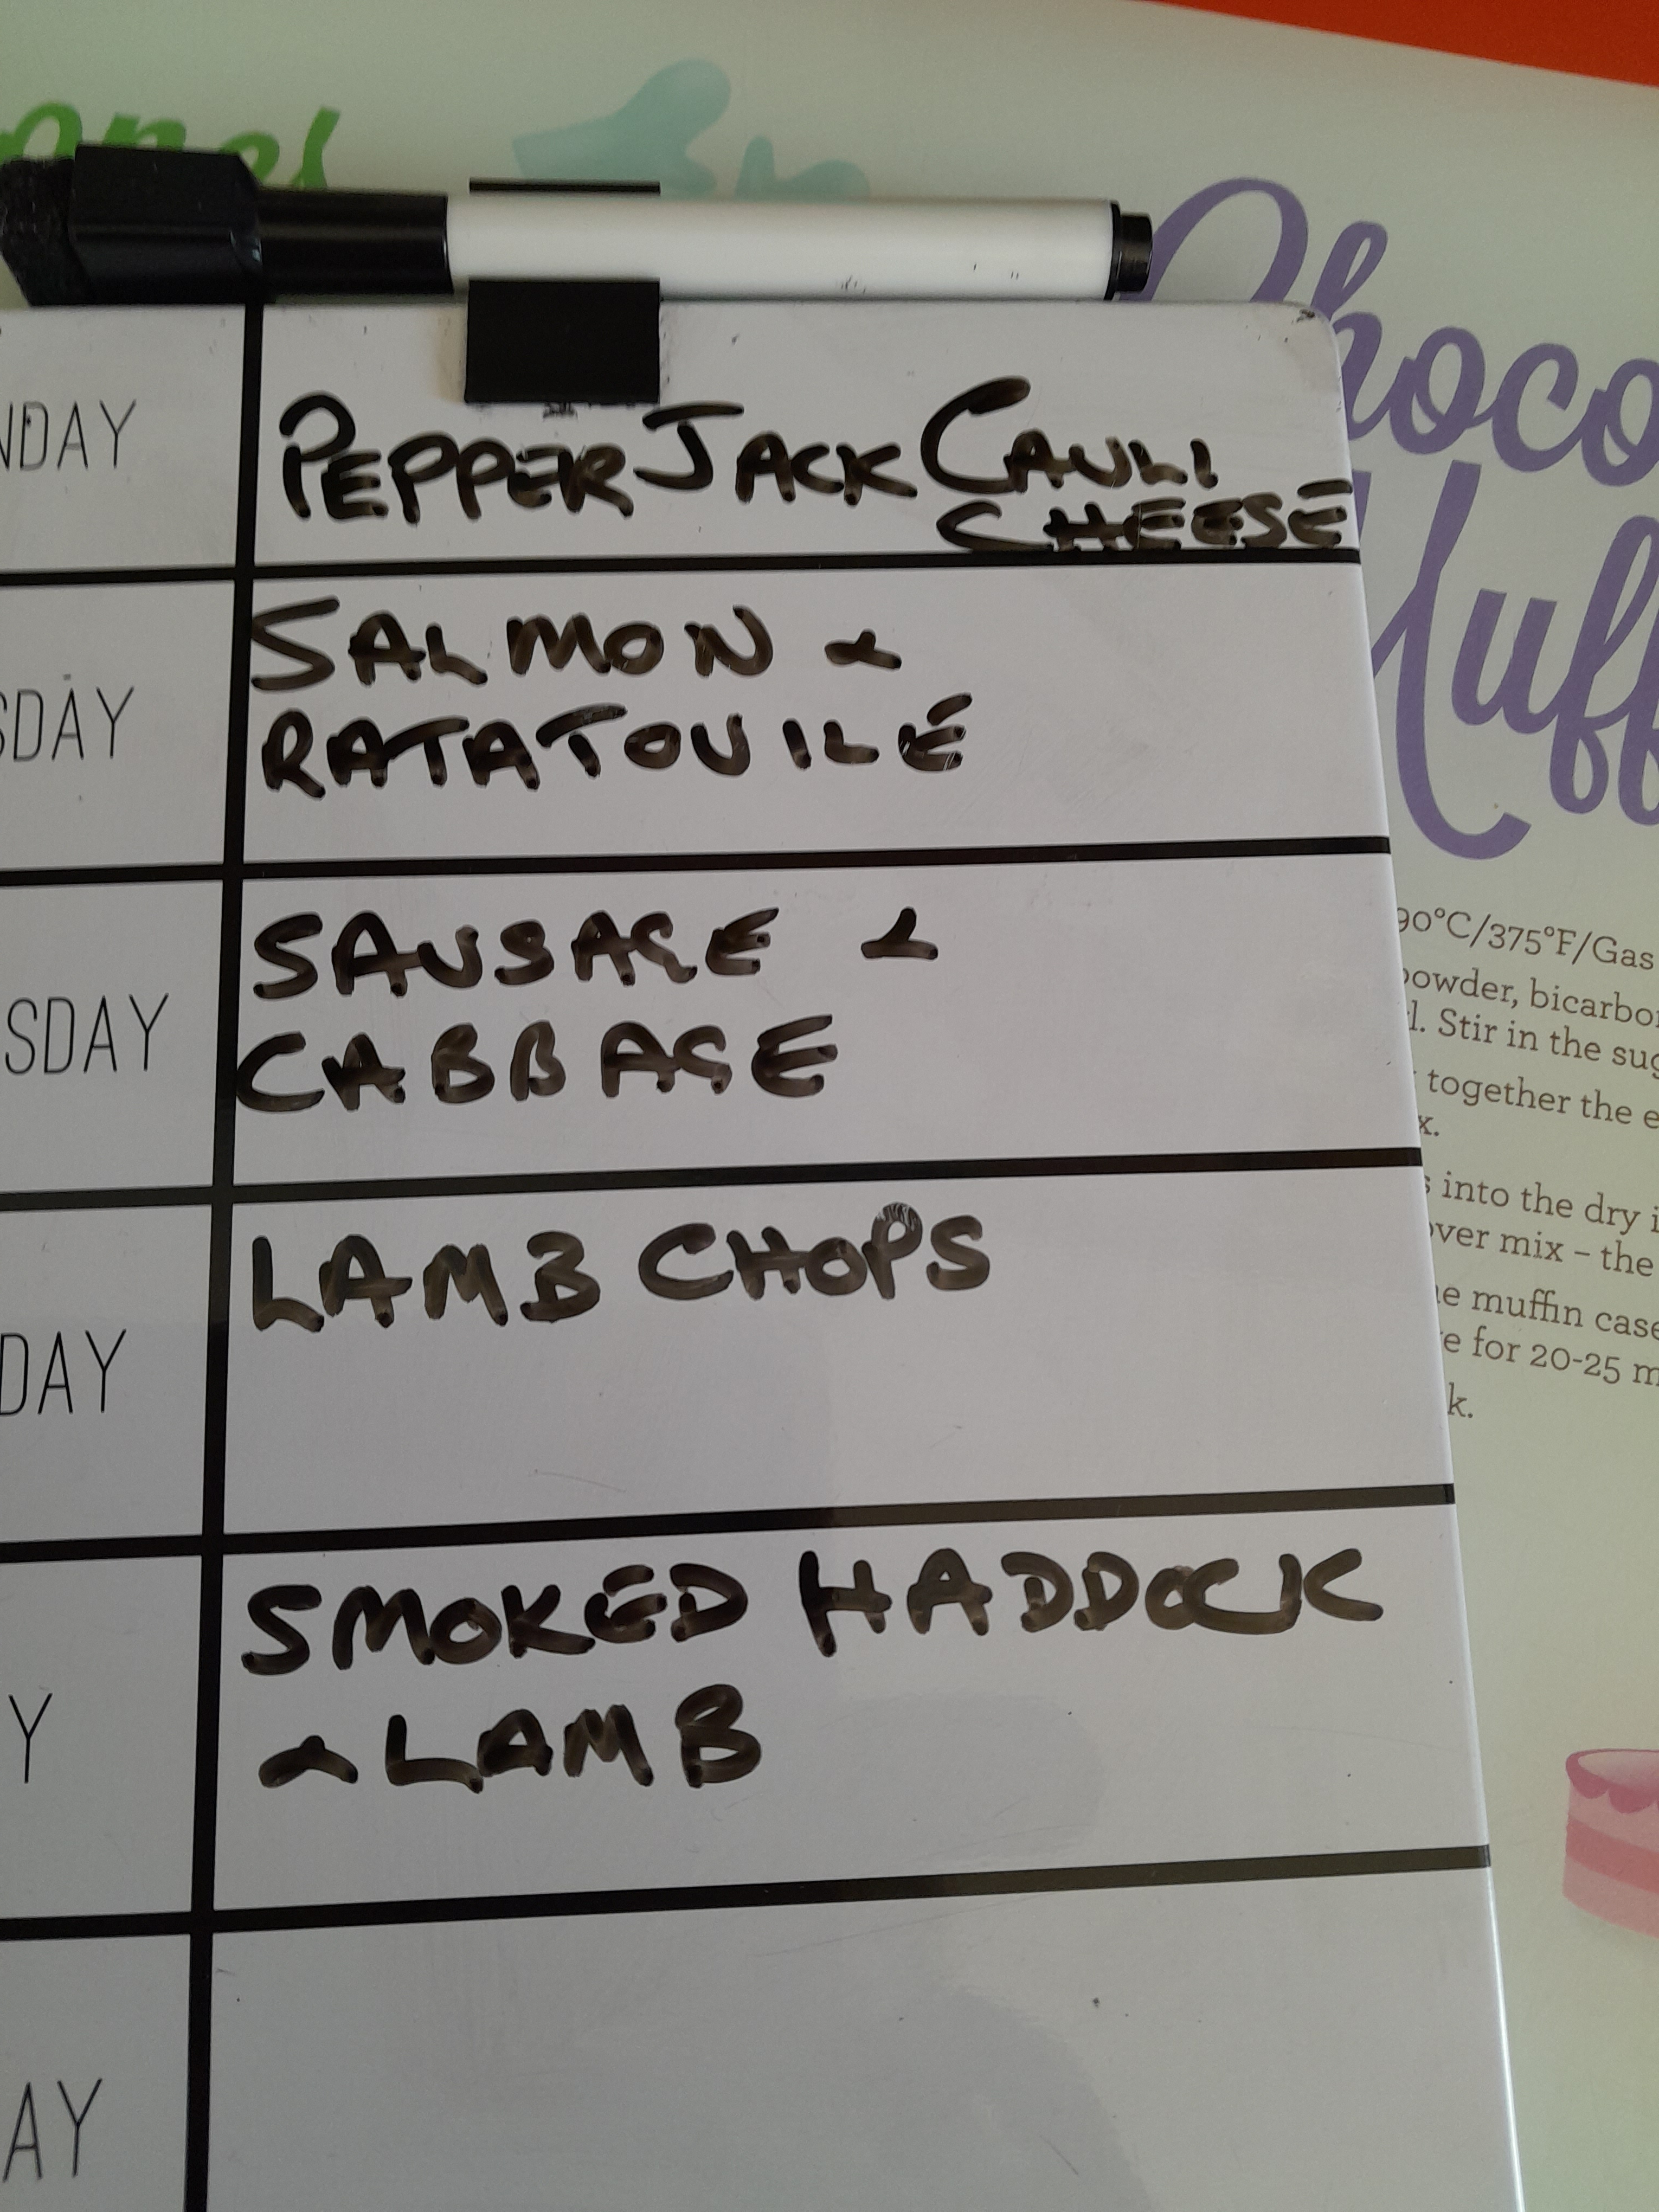 Choco
Muff
NDAY
PEPPER JACK CAULI
CHEESE
SDAY
SALMON &
RATATOUILE
SDAY
SAUSAGE &
CABBAGE
DAY
LAMB CHOPS
Y
SMOKED HADDOCK
& LAMB
AY
90°C/375°F/Gas
powder, bicarbon
l. Stir in the sug
together the e
x.
s into the dry i
over mix – the
e muffin case
e for 20-25 m
k.